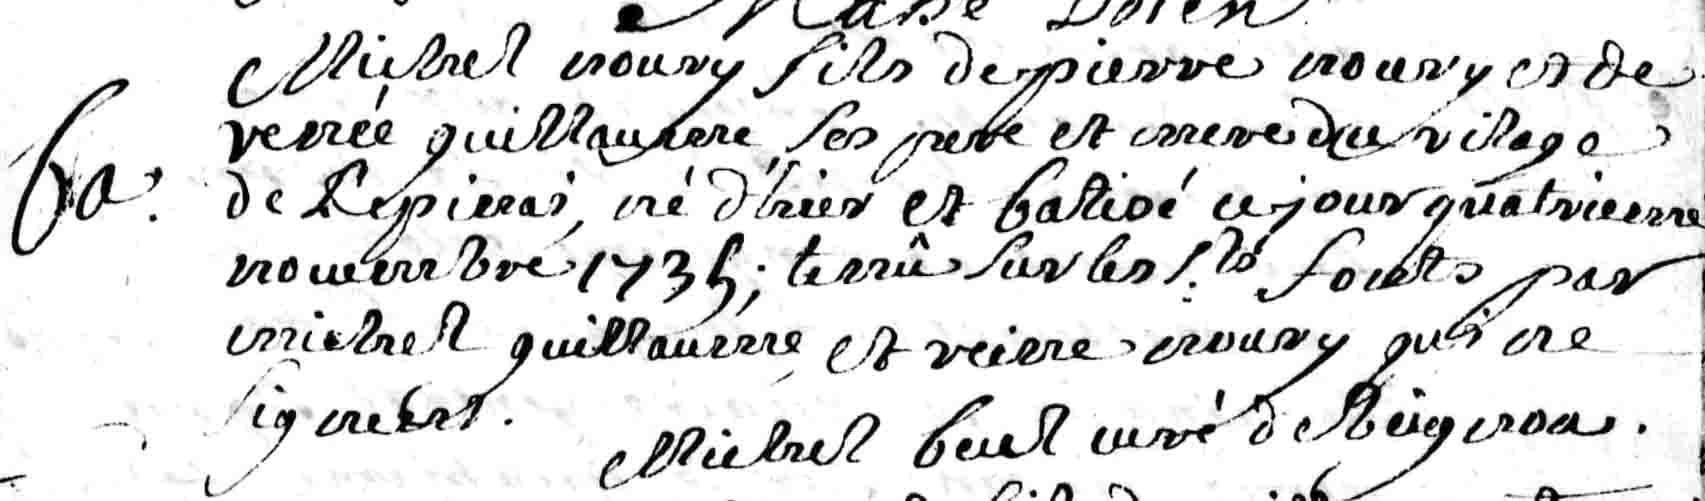 Michel noury fils de pierre noury et de
renée guillaume ses pere et mere du vilage
ba. de né d'hier et batisé ce jour quatrieme
novembre 1735; tenû sur les s.ts fonts par
michel guillaume, et reine noury qui ne
signent.
Michel curé de